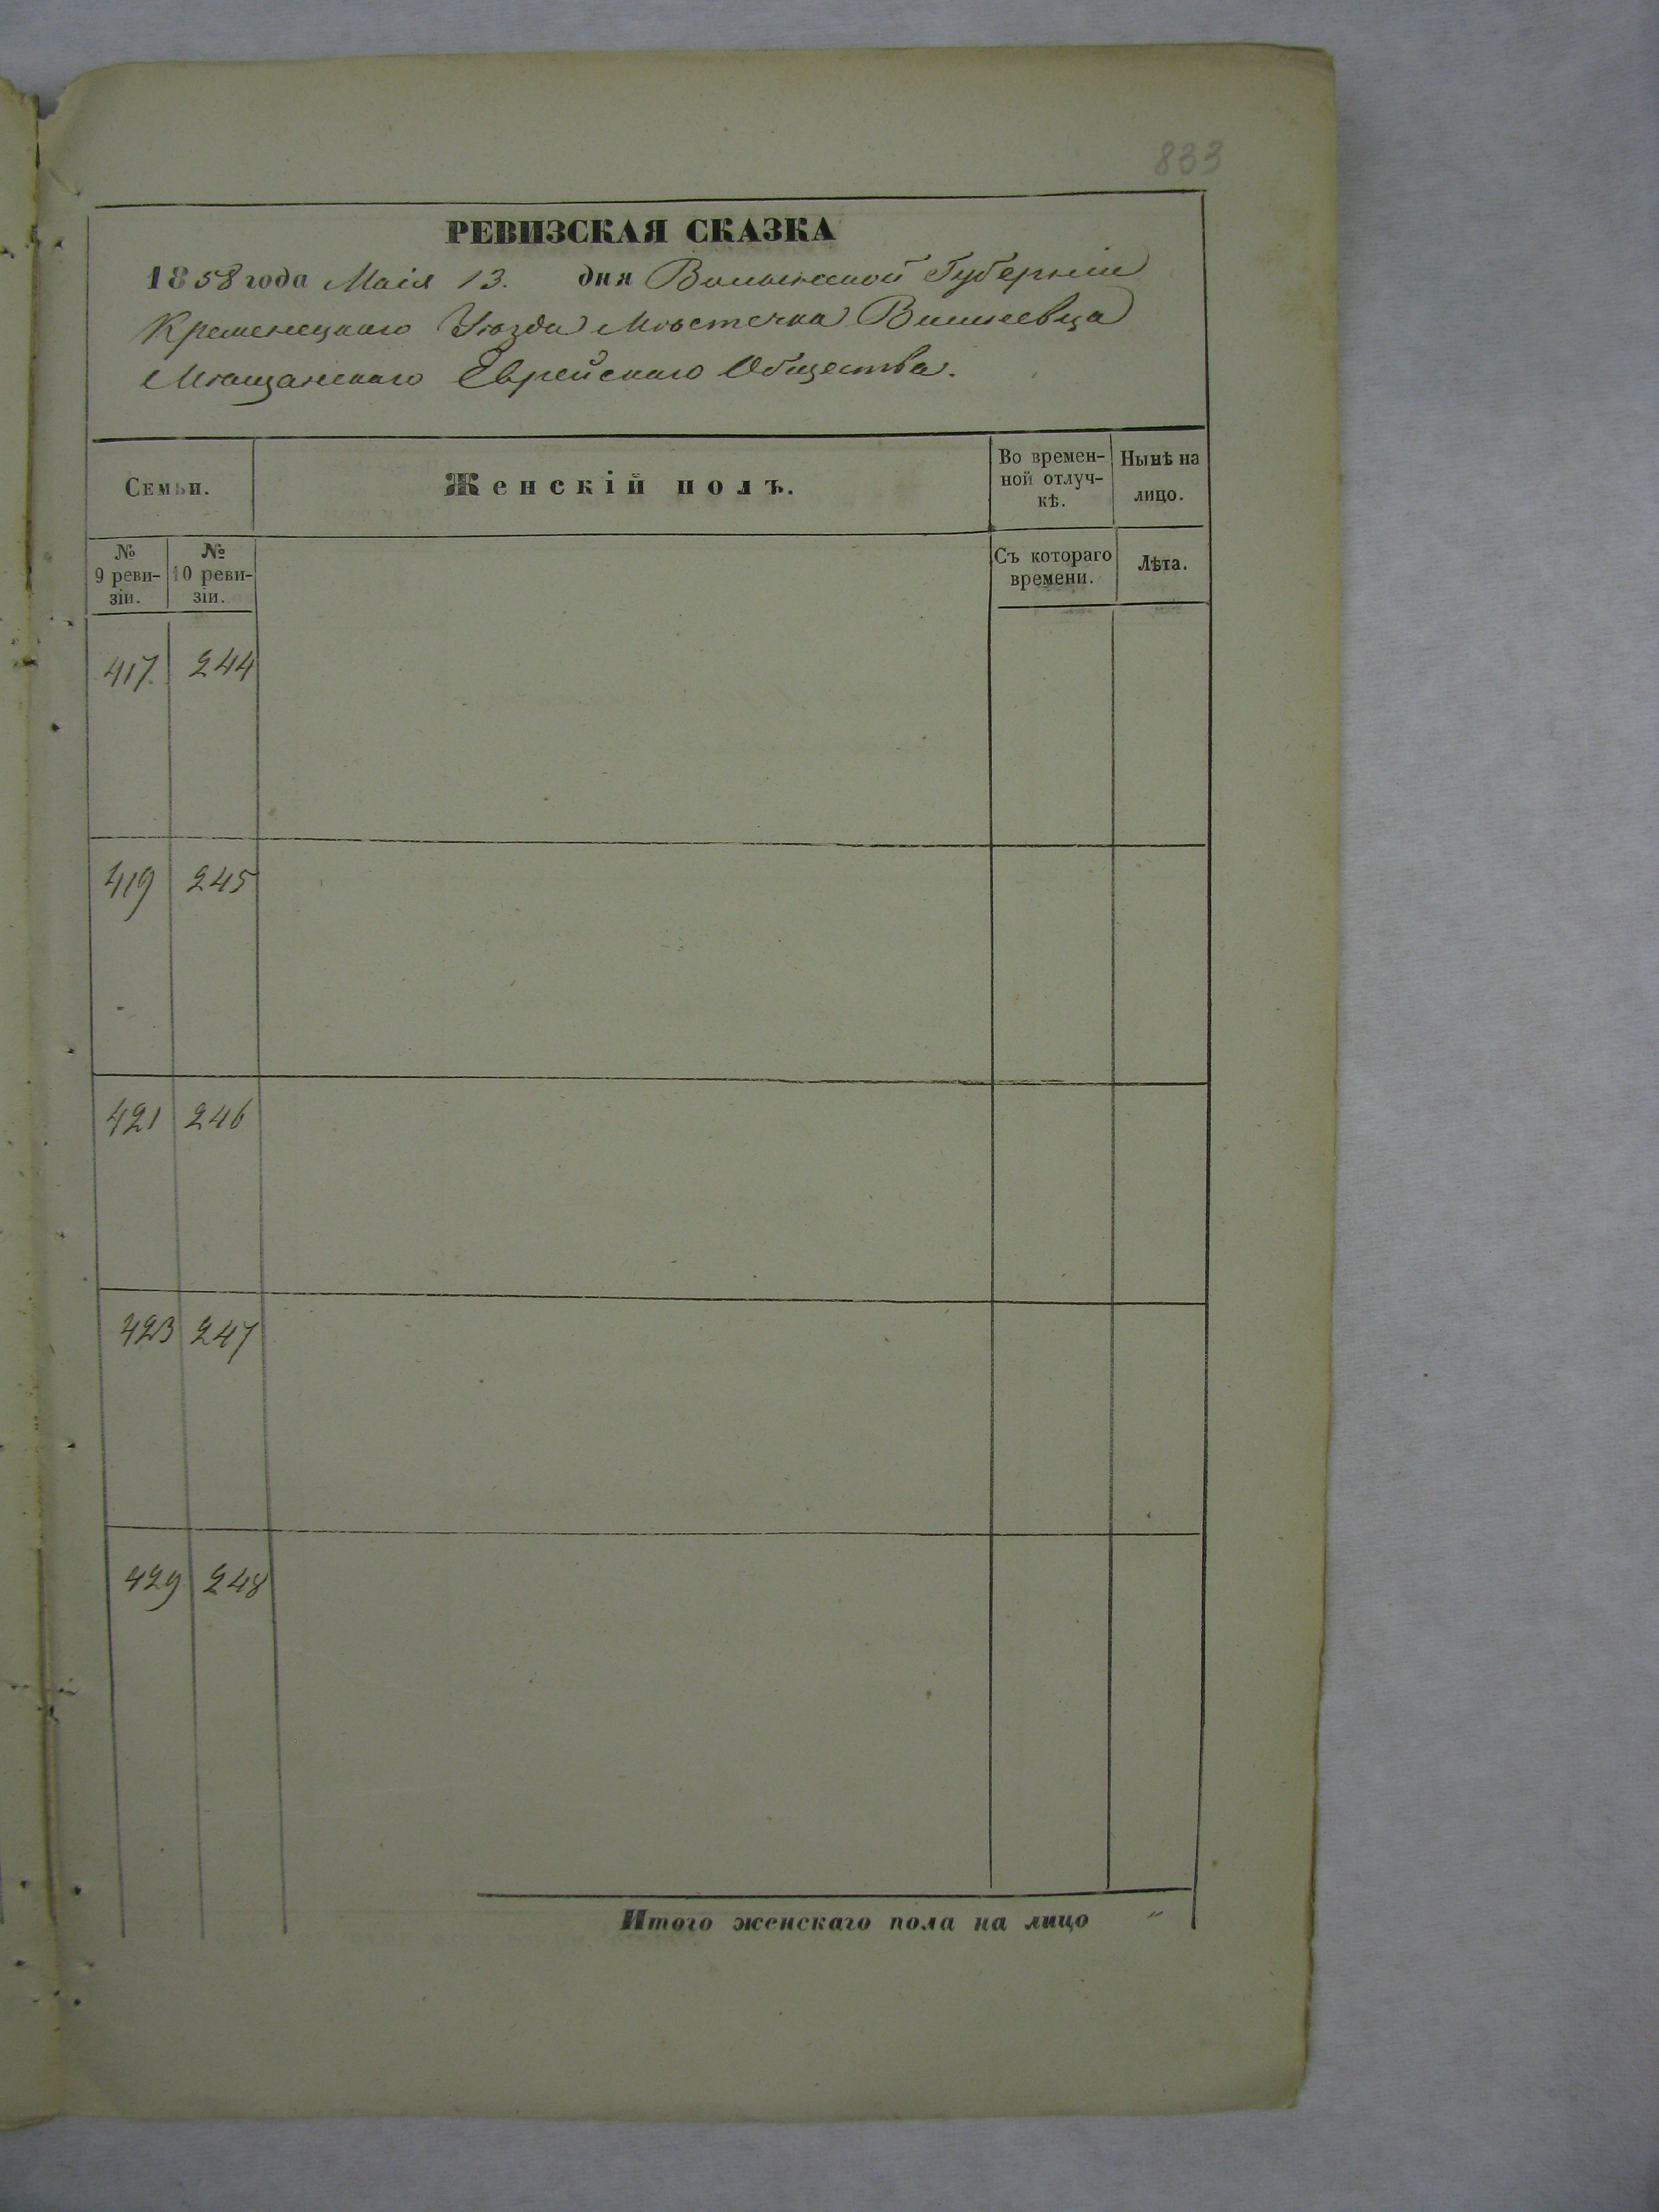 833
РЕВИЗСКАЯ СКАЗКА
1858 года Маія 13. дня Волынской Губерніи
Кременецкаго Уѣзда Мѣстечка Вишневца
Мѣщанскаго Еврейскаго Общества.
Семьи.
Женскій полъ.
Во времен-
ной отлуч-
кѣ.
Нынѣ на
лицо.
№
9 реви-
зіи.
№
10 реви-
зіи.
Съ котораго
времени.
Лѣта.
417. 244
419 245
421 246
423 247
429 248
Итого женскаго пола на лицо "